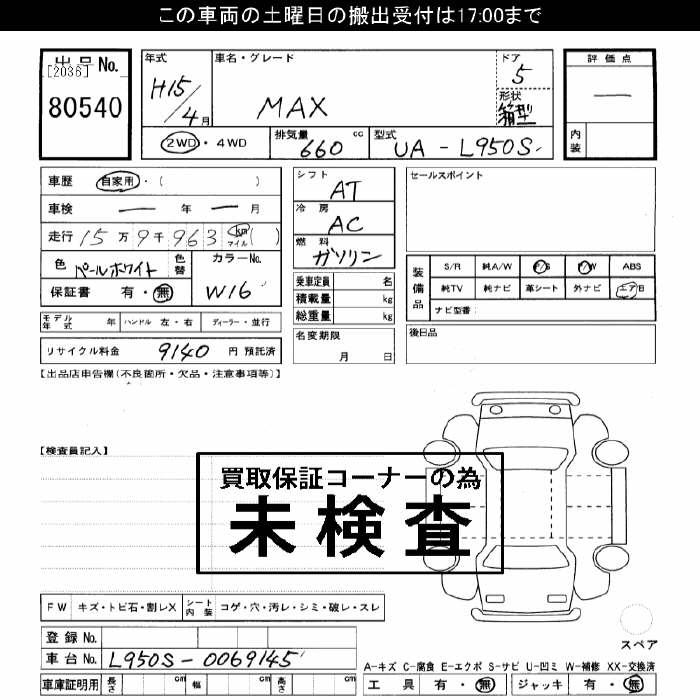 この車両の土曜日の搬出受付は17:00まで
出品No.
[2036]
80540
年式
H15/4月
車名・グレード
MAX
ドア
5
形状
箱型
評価点
—
内装
2WD・4WD
排気量
660 cc
型式
UA-L950S
車歴 自家用・( )
車検 — 年 — 月
走行 15万9千963 km マイル ( )
色 パールホワイト
色替
カラーNo.
W16
保証書 有・無
モデル年式 年 ハンドル 左・右 ディーラー・並行
リサイクル料金 9140 円 預託済
シフト
AT
冷房
AC
燃料
ガソリン
乗車定員 名
積載量 kg
総重量 kg
名変期限
月 日
セールスポイント
装備品
S/R 純A/W P/S P/W ABS
純TV 純ナビ 革シート 外ナビ エアB
ナビ型番:
後日品
【出品店申告欄(不良箇所・欠品・注意事項等)】
【検査員記入】
買取保証コーナーの為
未検査
FW キズ・トビ石・割レX シート内装 コゲ・穴・汚レ・シミ・破レ・スレ
登録No.
車台No. L950S-0069145
車庫証明用 長さ cm 幅 cm 高さ cm
スペア
A-キズ C-腐食 E-エクボ S-サビ U-凹ミ W-補修 XX-交換済
工具 有・無 ジャッキ 有・無